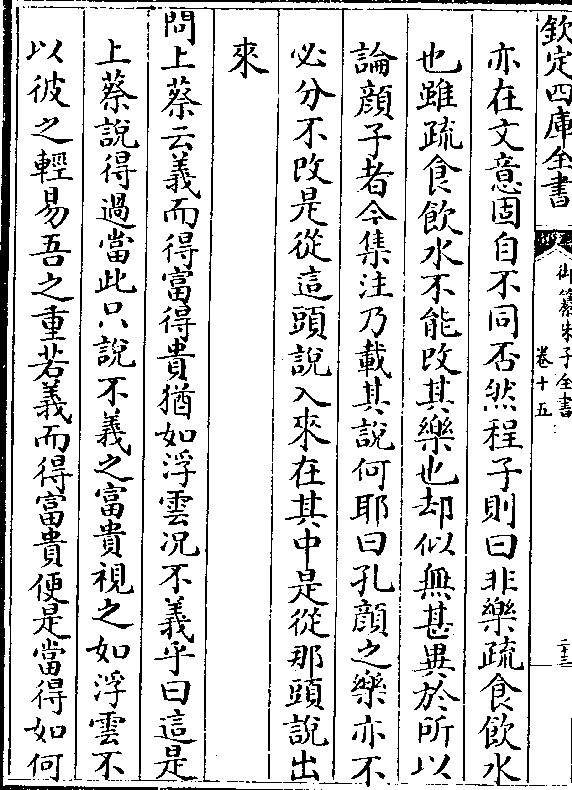 欽定四庫全書
御纂朱子全書
卷十五
二十三
亦在文意固自不同否然程子則曰非樂疏食飲水
也雖疏食飲水不能改其樂也却似無甚異於所以
論顔子者今集注乃載其說何耶曰孔顔之樂亦不
必分不改是從這頭說入來在其中是從那頭說出
來
問上蔡云義而得富得貴猶如浮雲况不義乎曰這是
上蔡說得過當此只說不義之富貴視之如浮雲不
以彼之輕易吾之重若義而得富貴便是當得如何